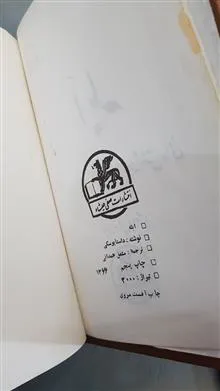 انتشارات صفی علیشاه
□ ابله
□ نوشته : داستایوسکی
□ ترجمه : مشفق همدانی
□ چاپ پنجم ۱۳۶۶
□ تیراژ : ۳۰۰۰
چاپ افست مروی